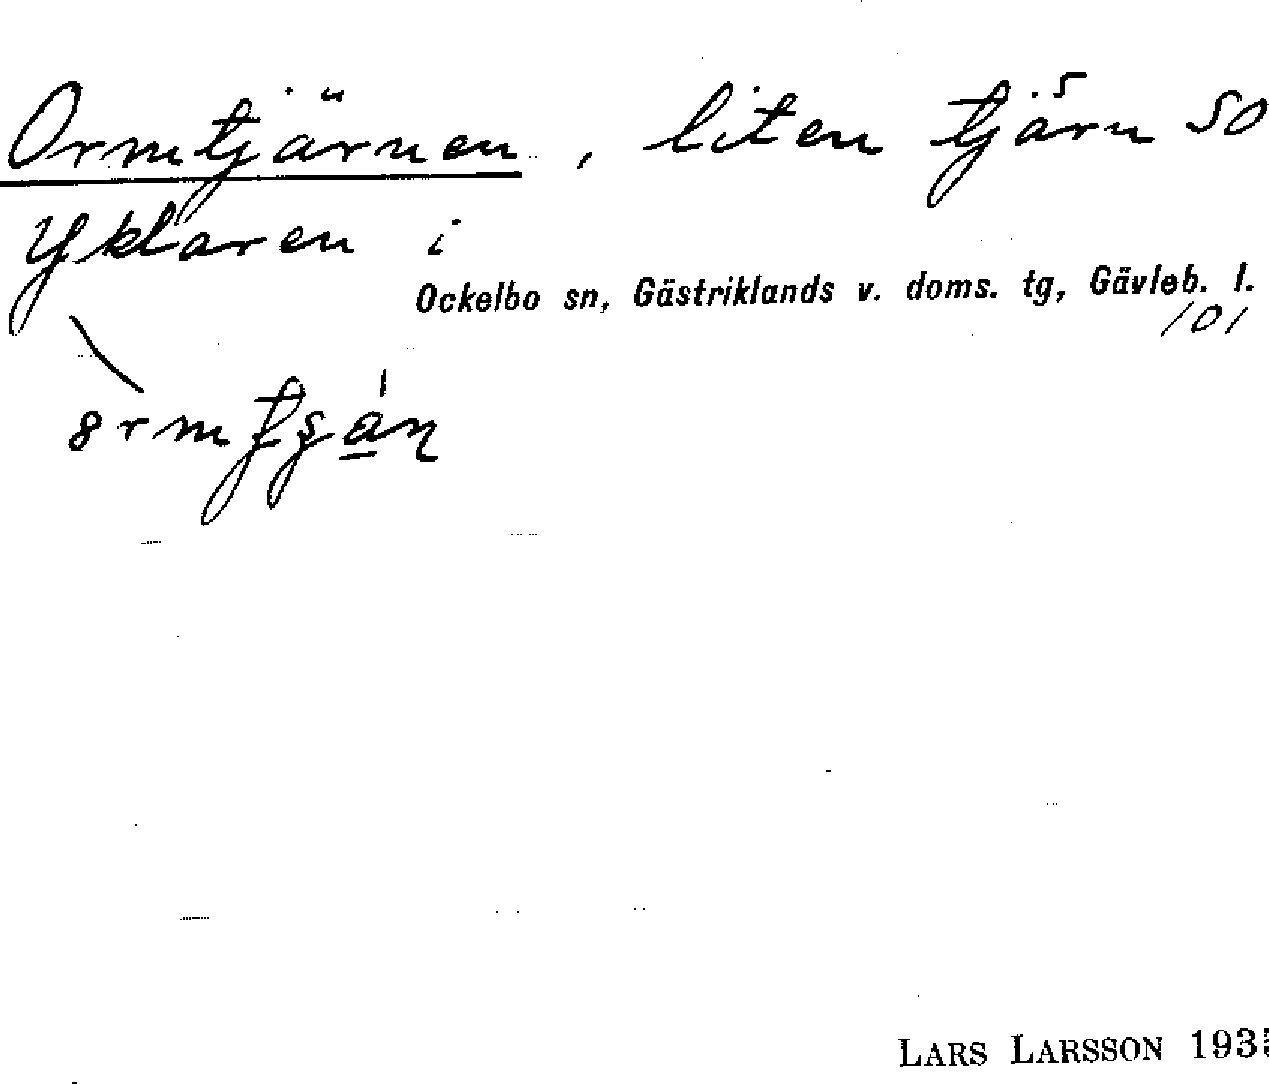 Ormtjärnen, liten tjärn SO
Yklaren i
Ockelbo sn, Gästriklands v. doms. tg, Gävleb. l.
101
LARS LARSSON 193